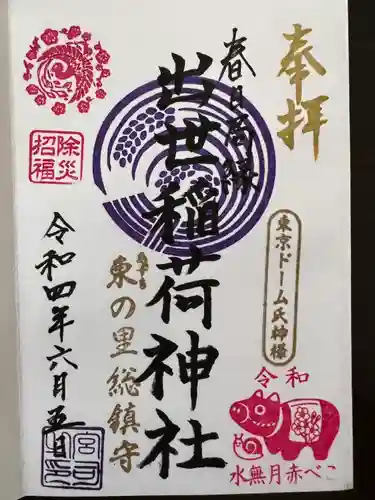 奉拝
東京ドーム氏神様
令和
水無月赤べこ
春日局縁
出世稲荷神社
東の里総鎮守
除災
招福
令和四年六月五日